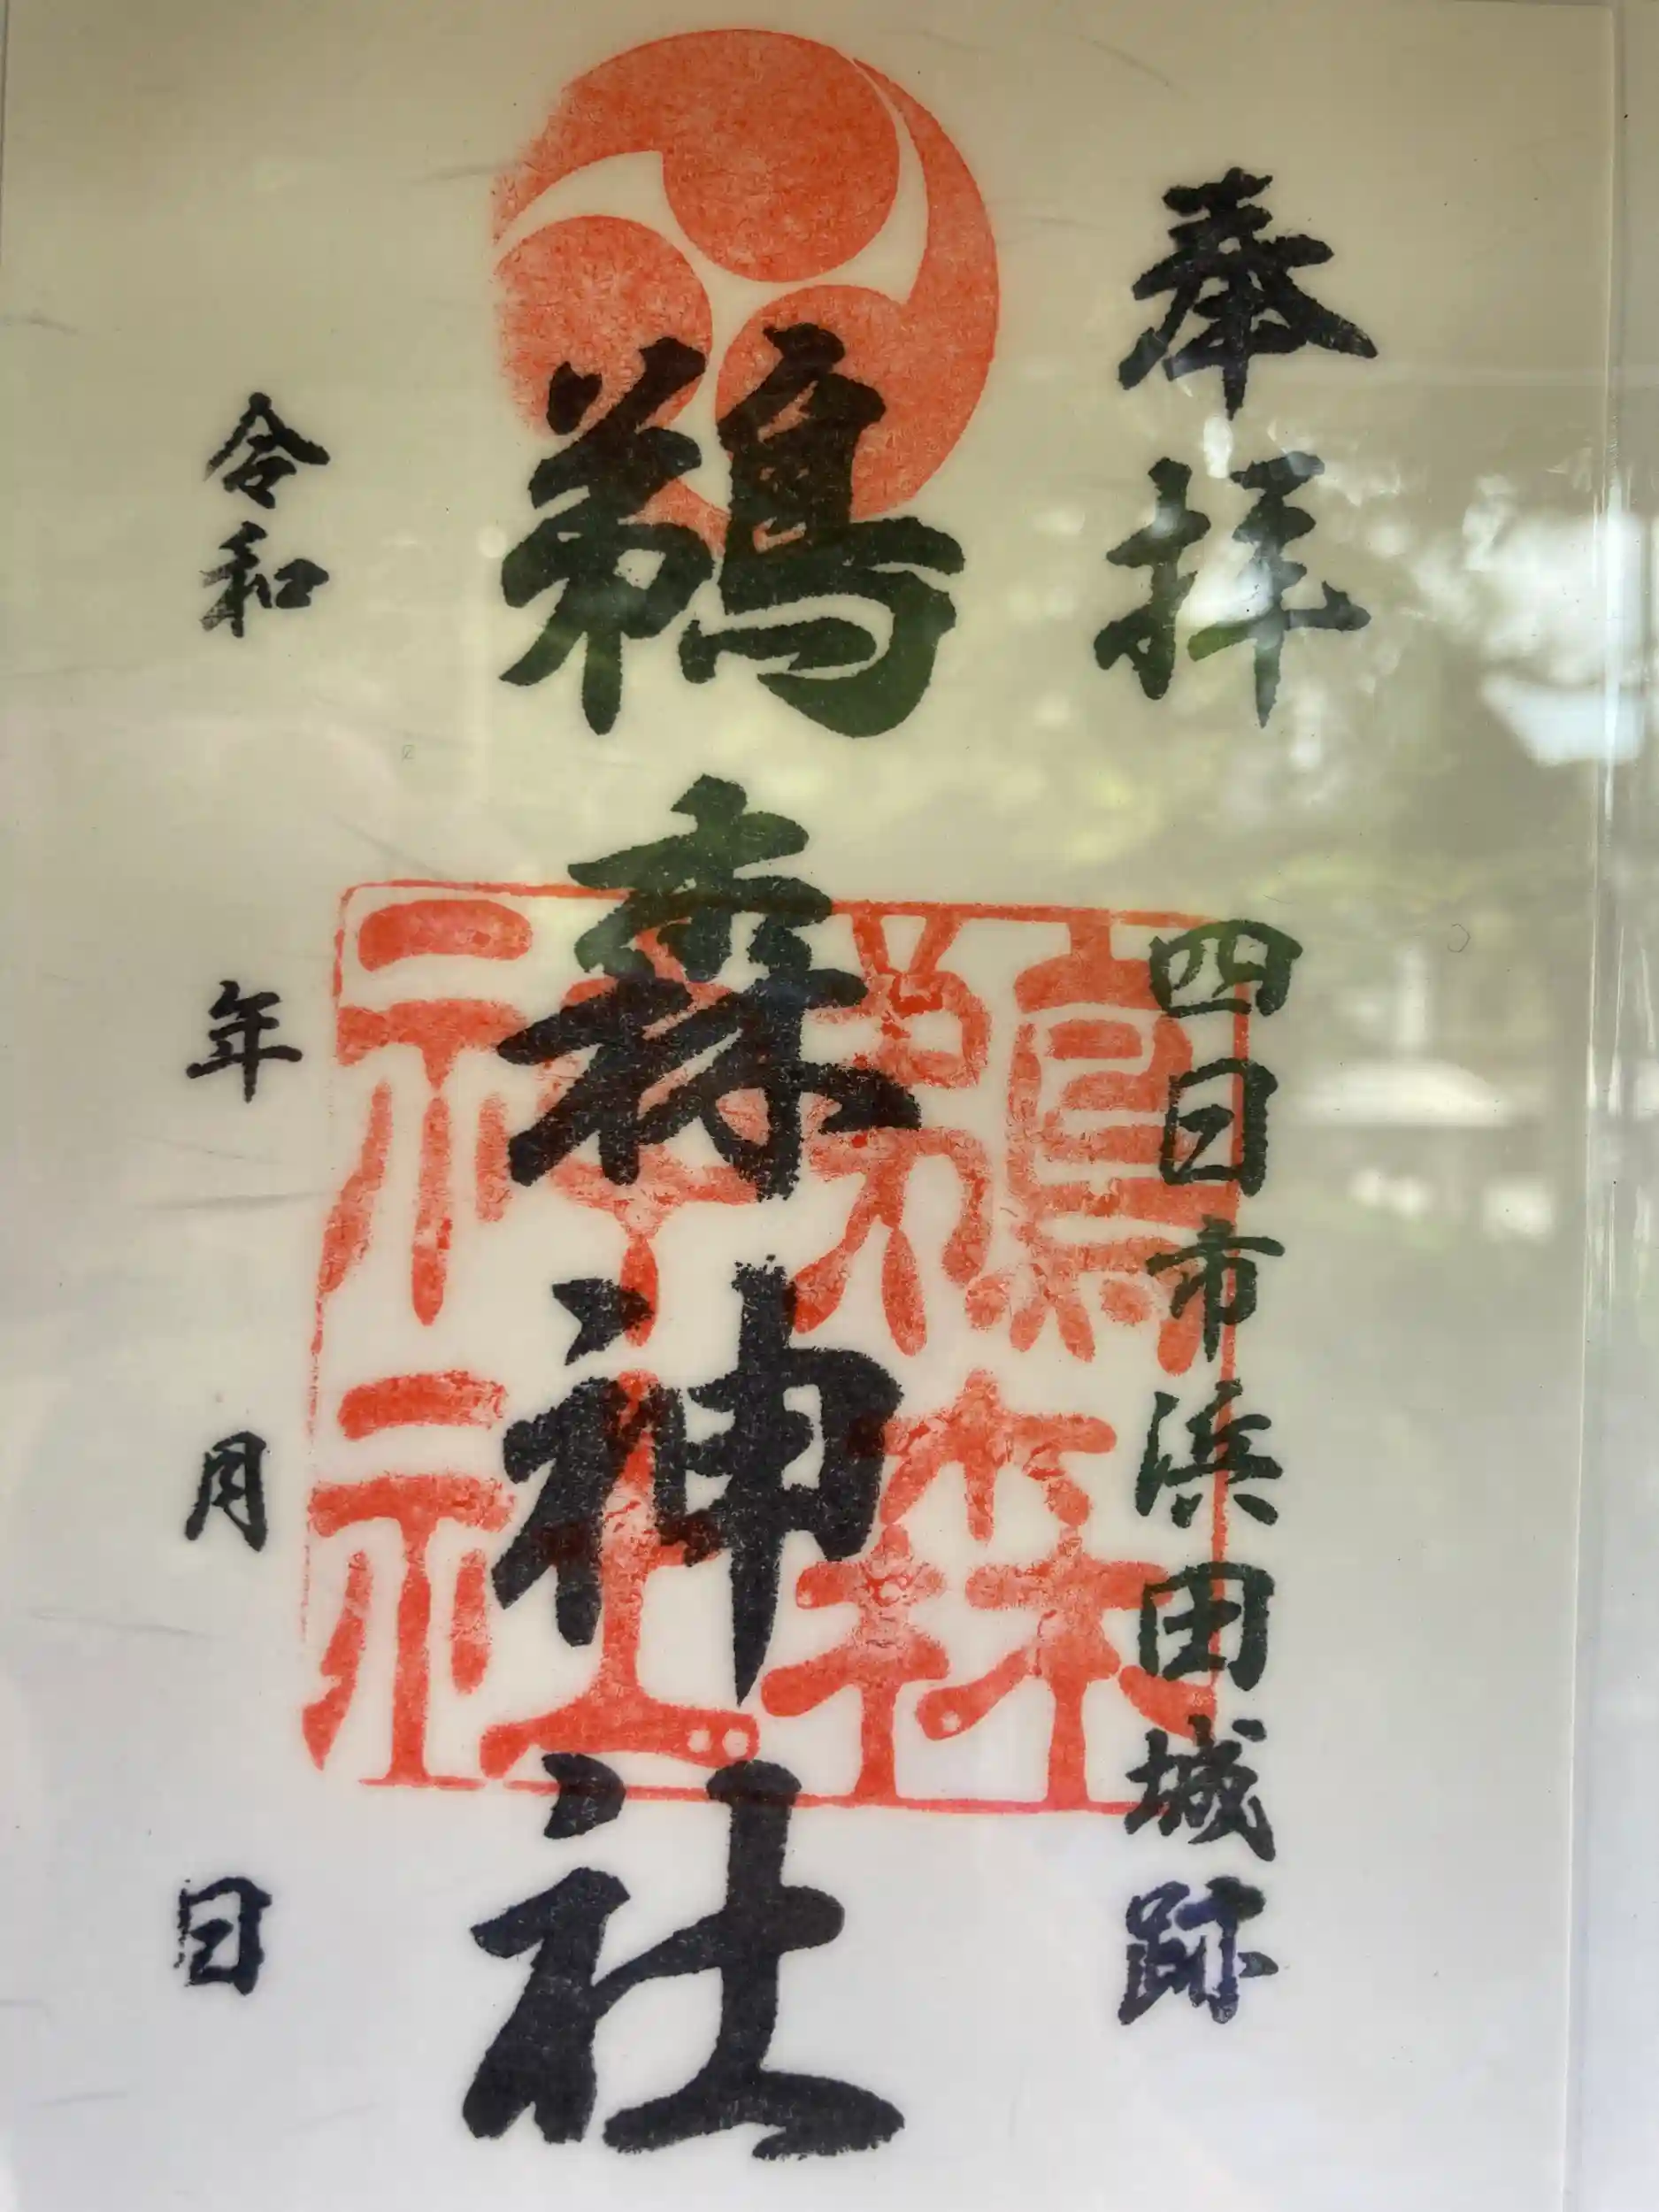 奉拝
四日市浜田城跡
鵜森神社
鵜森神社
令和 年 月 日